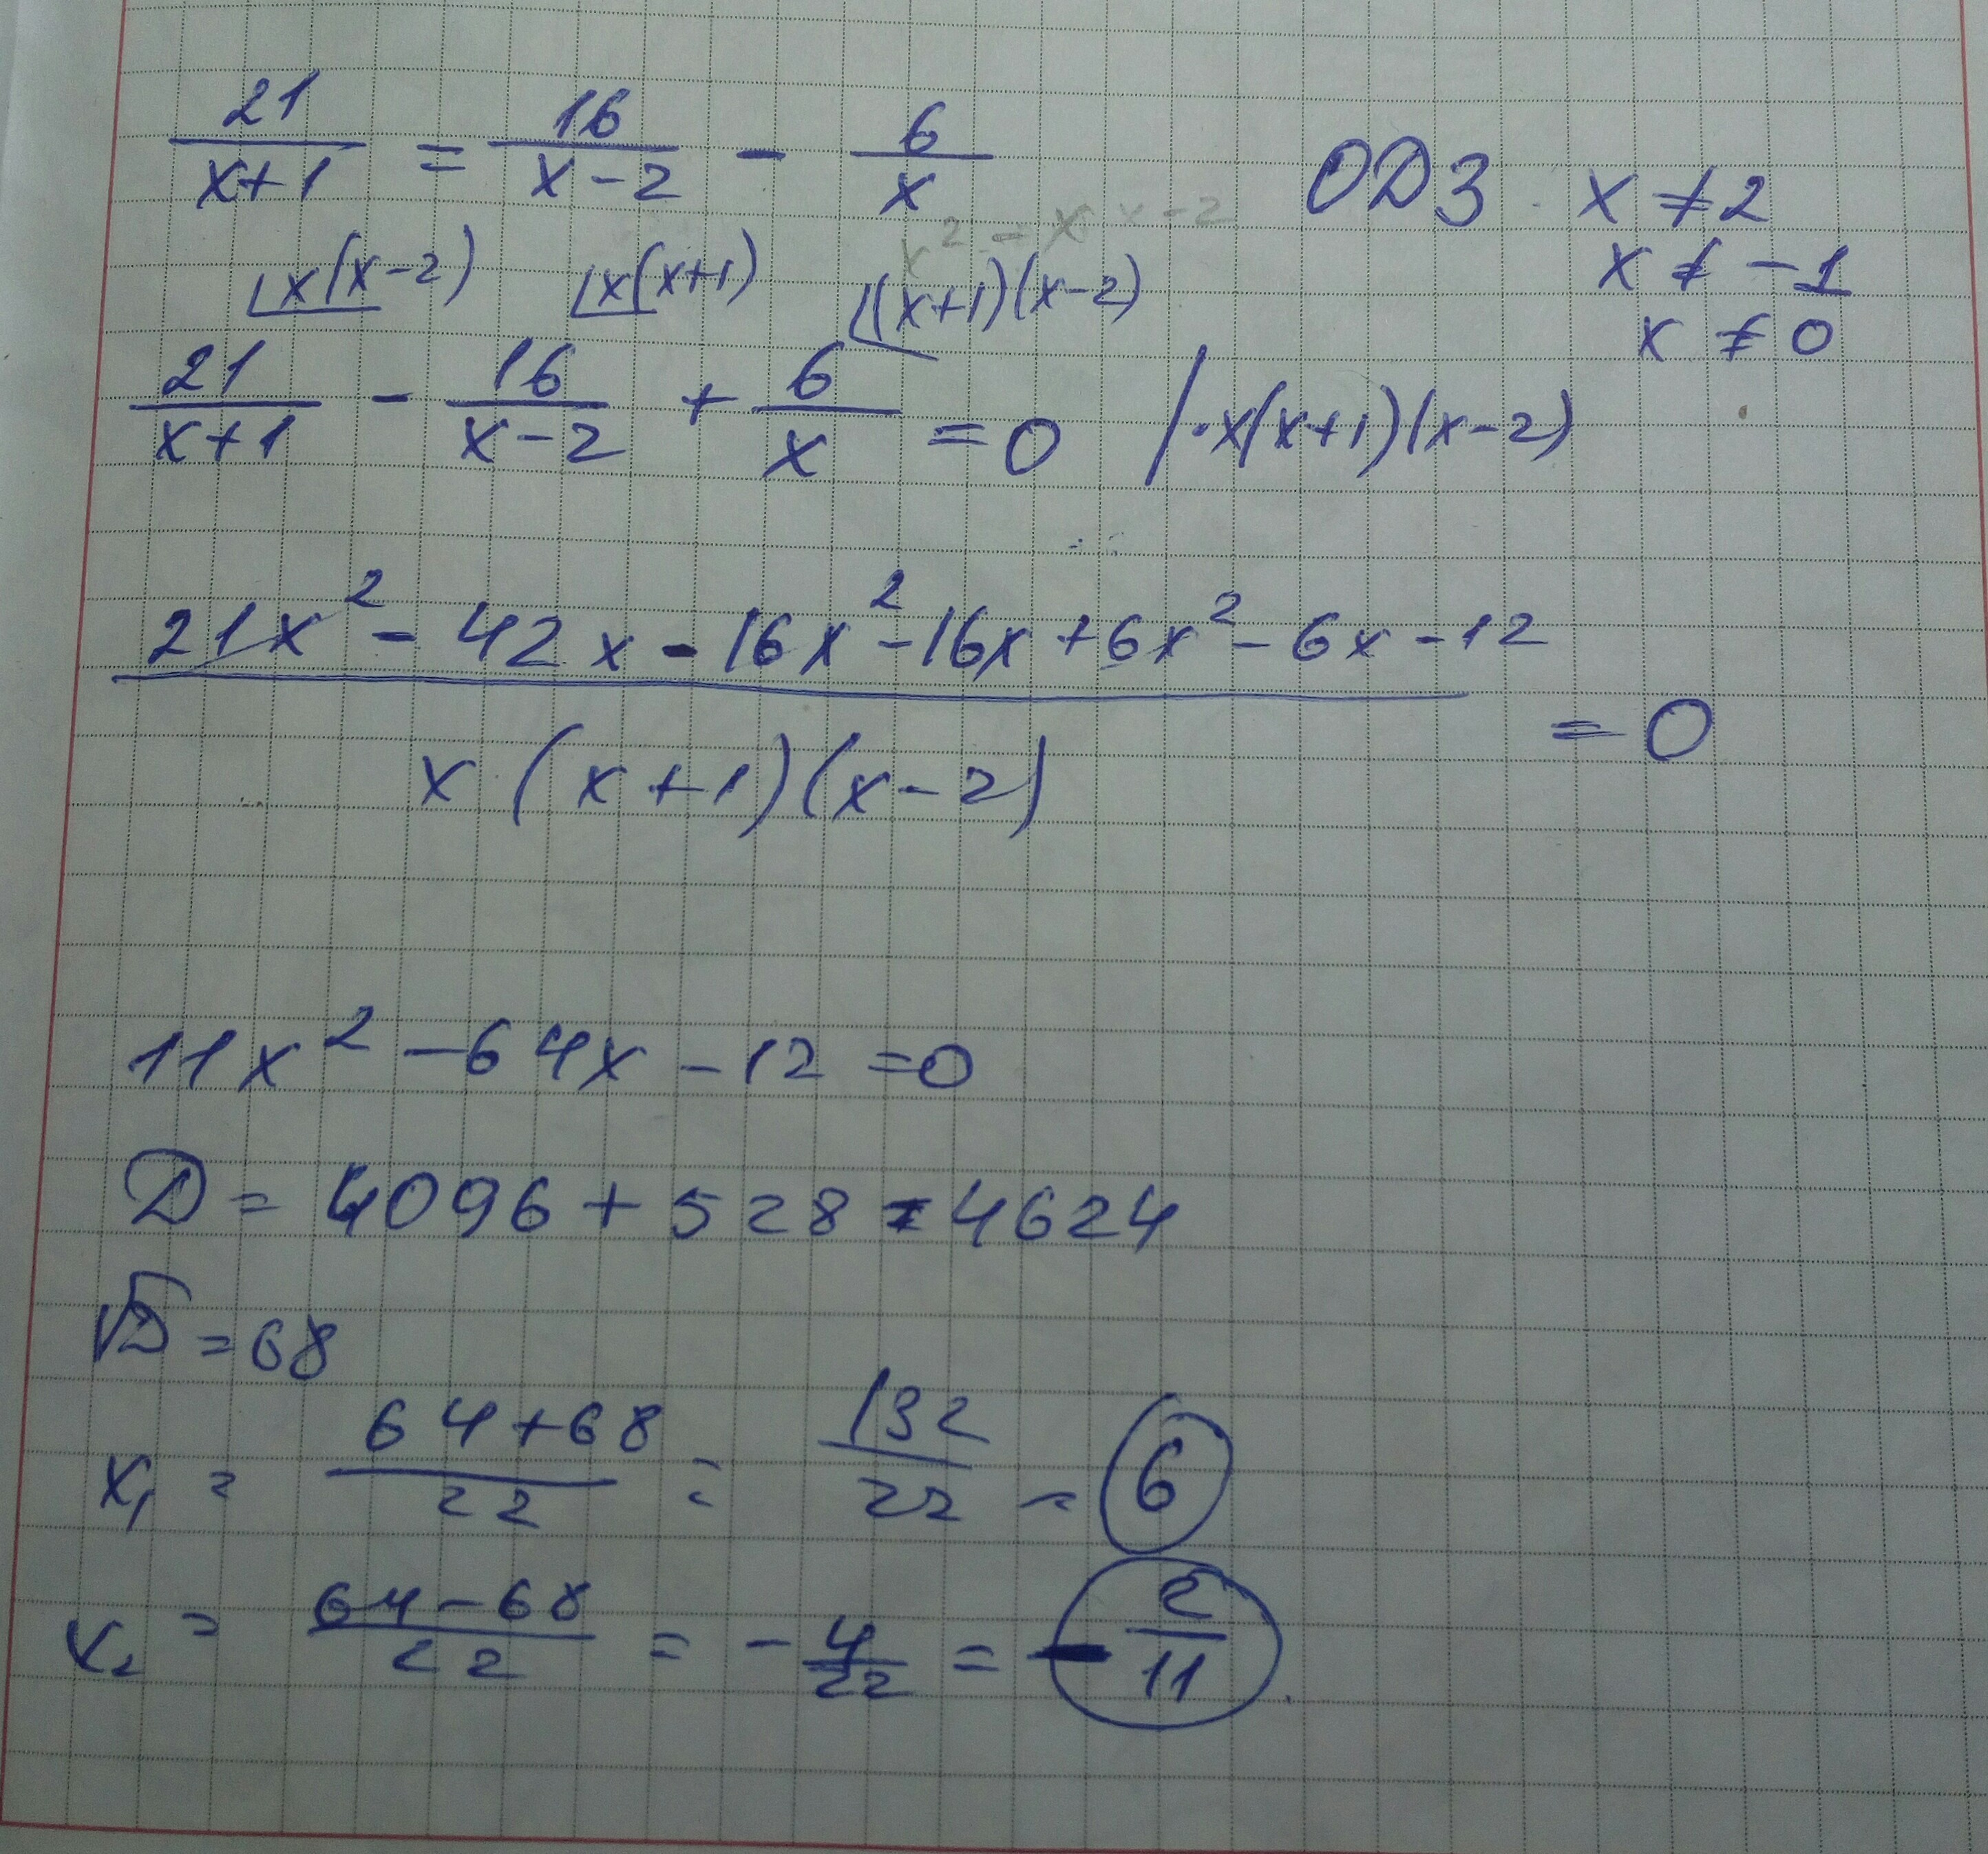 21/(x+1) = 16/(x-2) - 6/x   ОДЗ x ≠ 2
x ≠ -1
x ≠ 0
x² - x x-2
⌊x(x-2) ⌊x(x+1) ⌊(x+1)(x-2)
21/(x+1) - 16/(x-2) + 6/x = 0 /·x(x+1)(x-2)
21x² - 42x - 16x² - 16x + 6x² - 6x - 12
x(x+1)(x-2) = 0
11x² - 64x - 12 = 0
Д = 4096 + 528 = 4624
√Д = 68
x₁ = (64+68)/22 = 132/22 = 6
x₂ = (64-68)/22 = -4/22 = -2/11